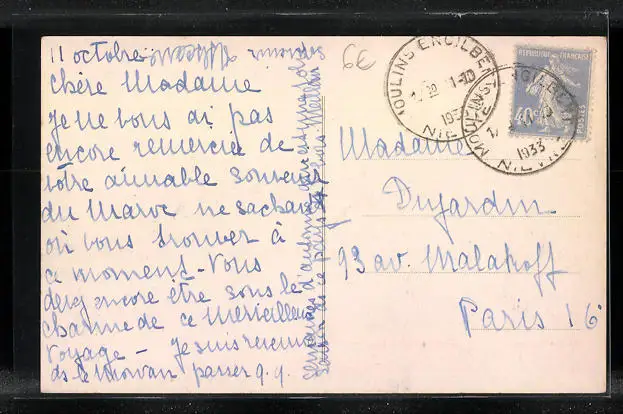 11 octobre
Chère Madame
Je ne vous ai pas
encore remerciée de
votre aimable souvenir
du Maroc ne sachant
où vous trouver à
ce moment - Vous
devez encore être sous le
charme de ce merveilleux
voyage - Je suis revenue
ds le Morvan passer q.q.
semaines d'automne
6€
MOULINS ENGILBERT
11-10
1933
NIEVRE
MOULINS ENGILBERT
1933
NIEVRE
REPUBLIQUE FRANÇAISE
40c
POSTES
Madame
Dujardin
93 av. Malakoff
Paris 16e